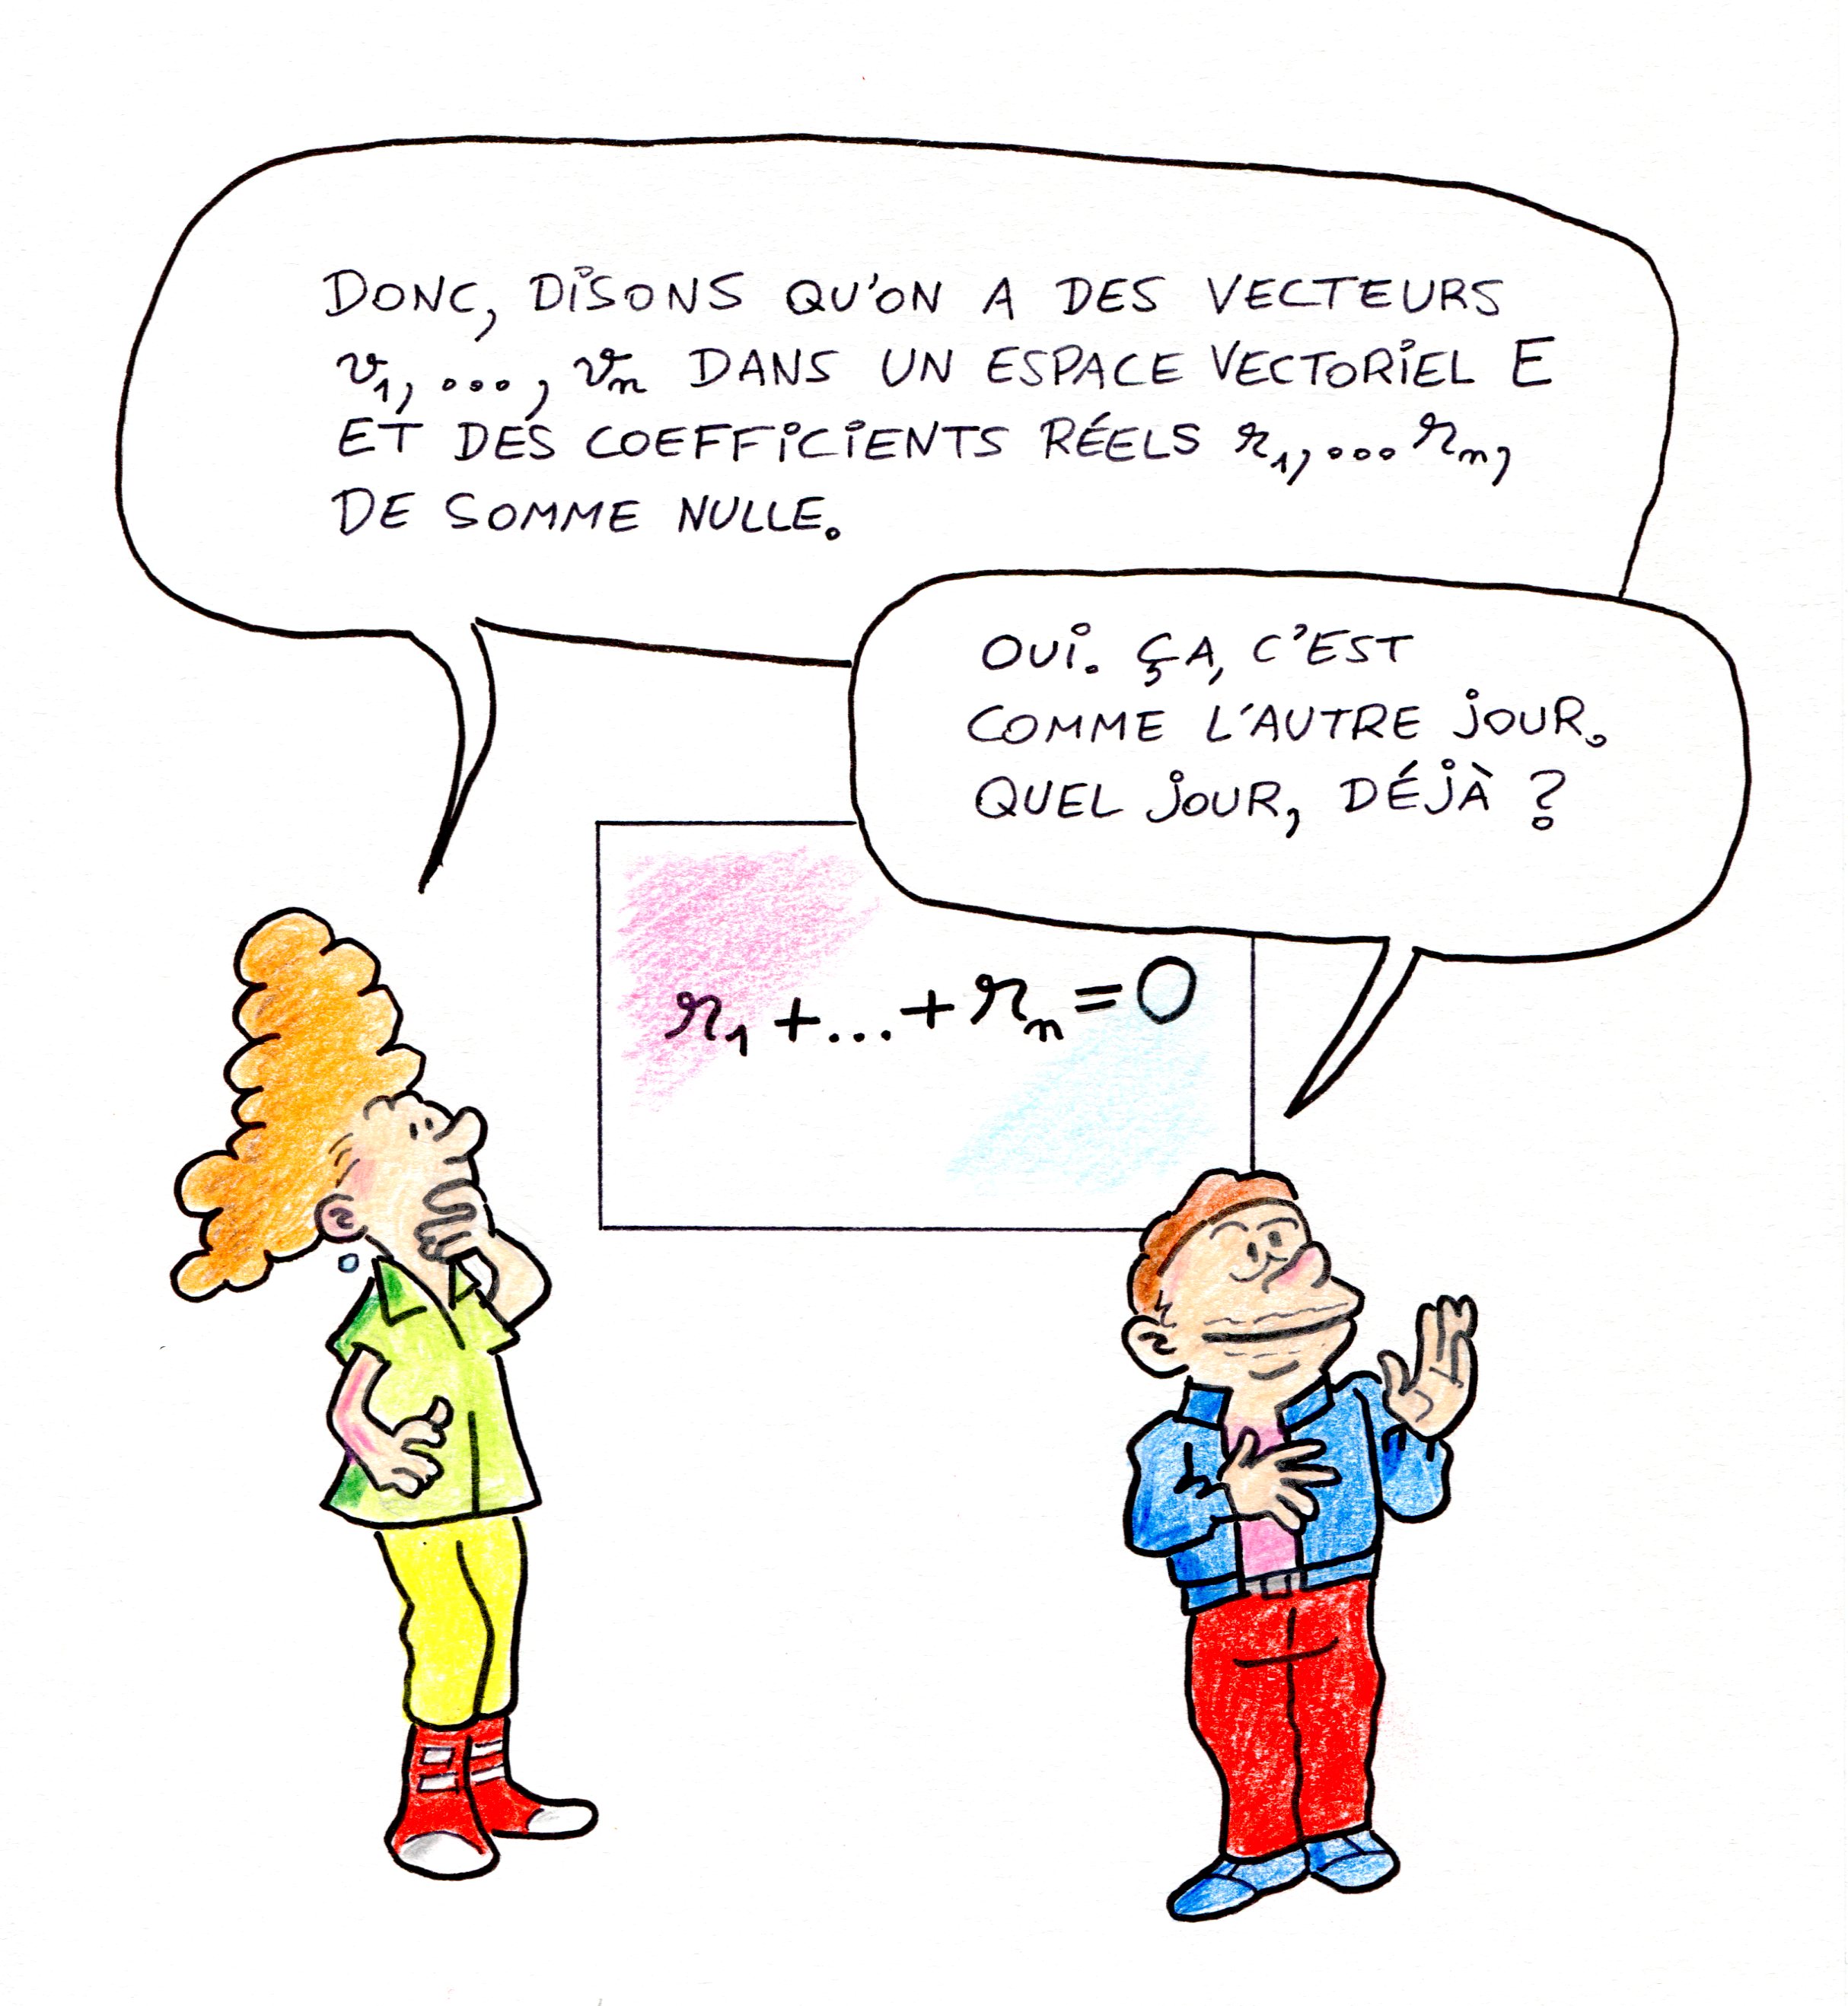 DONC, DISONS QU'ON A DES VECTEURS
v₁, ..., vₙ DANS UN ESPACE VECTORIEL E
ET DES COEFFICIENTS RÉELS r₁, ... rₙ,
DE SOMME NULLE.
OUI. ÇA, C'EST
COMME L'AUTRE JOUR.
QUEL JOUR, DÉJÀ ?
r₁ + ... + rₙ = 0